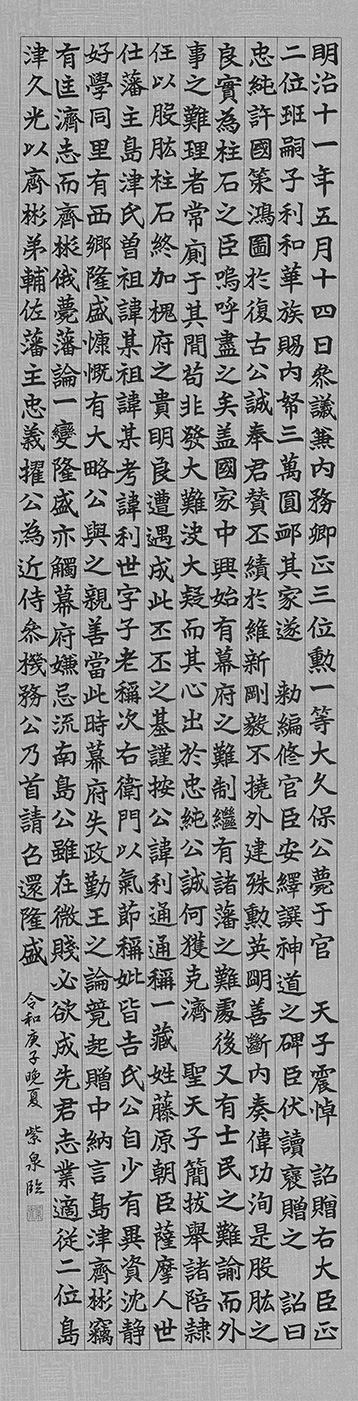 明治十一年五月十四日叅議兼内務卿正三位勲一等大久保公薨于官　天子震悼　詔贈右大臣正
二位班嗣子利和華族賜内帑三萬圓卹其家遂　勅編修官臣安繹譔神道之碑臣伏讀褒贈之　詔曰
忠純許國策鴻圖於復古公誠奉君賛丕績於維新剛毅不撓外建殊勲英明善斷内奏偉功洵是股肱之
良實為柱石之臣嗚呼盡之矣蓋國家中興始有幕府之難制繼有諸藩之難處後又有士民之難諭而外
事之難理者常廁于其間苟非發大難決大疑而其心出於忠純公誠何獲克濟　聖天子簡拔舉諸陪隷
任以股肱柱石終加槐府之貴明良遭遇成此丕丕之基謹按公諱利通通稱一藏姓藤原朝臣薩摩人世
仕藩主島津氏曽祖諱某祖諱某考諱利世字子老稱次右衛門以氣節稱妣皆吉氏公自少有異資沈静
好學同里有西郷隆盛慷慨有大略公與之親善當此時幕府失政勤王之論竟起贈中納言島津齊彬竊
有匡濟志而齊彬俄薨藩論一變隆盛亦觸幕府嫌忌流南島公雖在微賤必欲成先君志業適従二位島
津久光以齊彬弟輔佐藩主忠義擢公為近侍叅機務公乃首請召還隆盛
令和庚子晩夏　紫泉臨